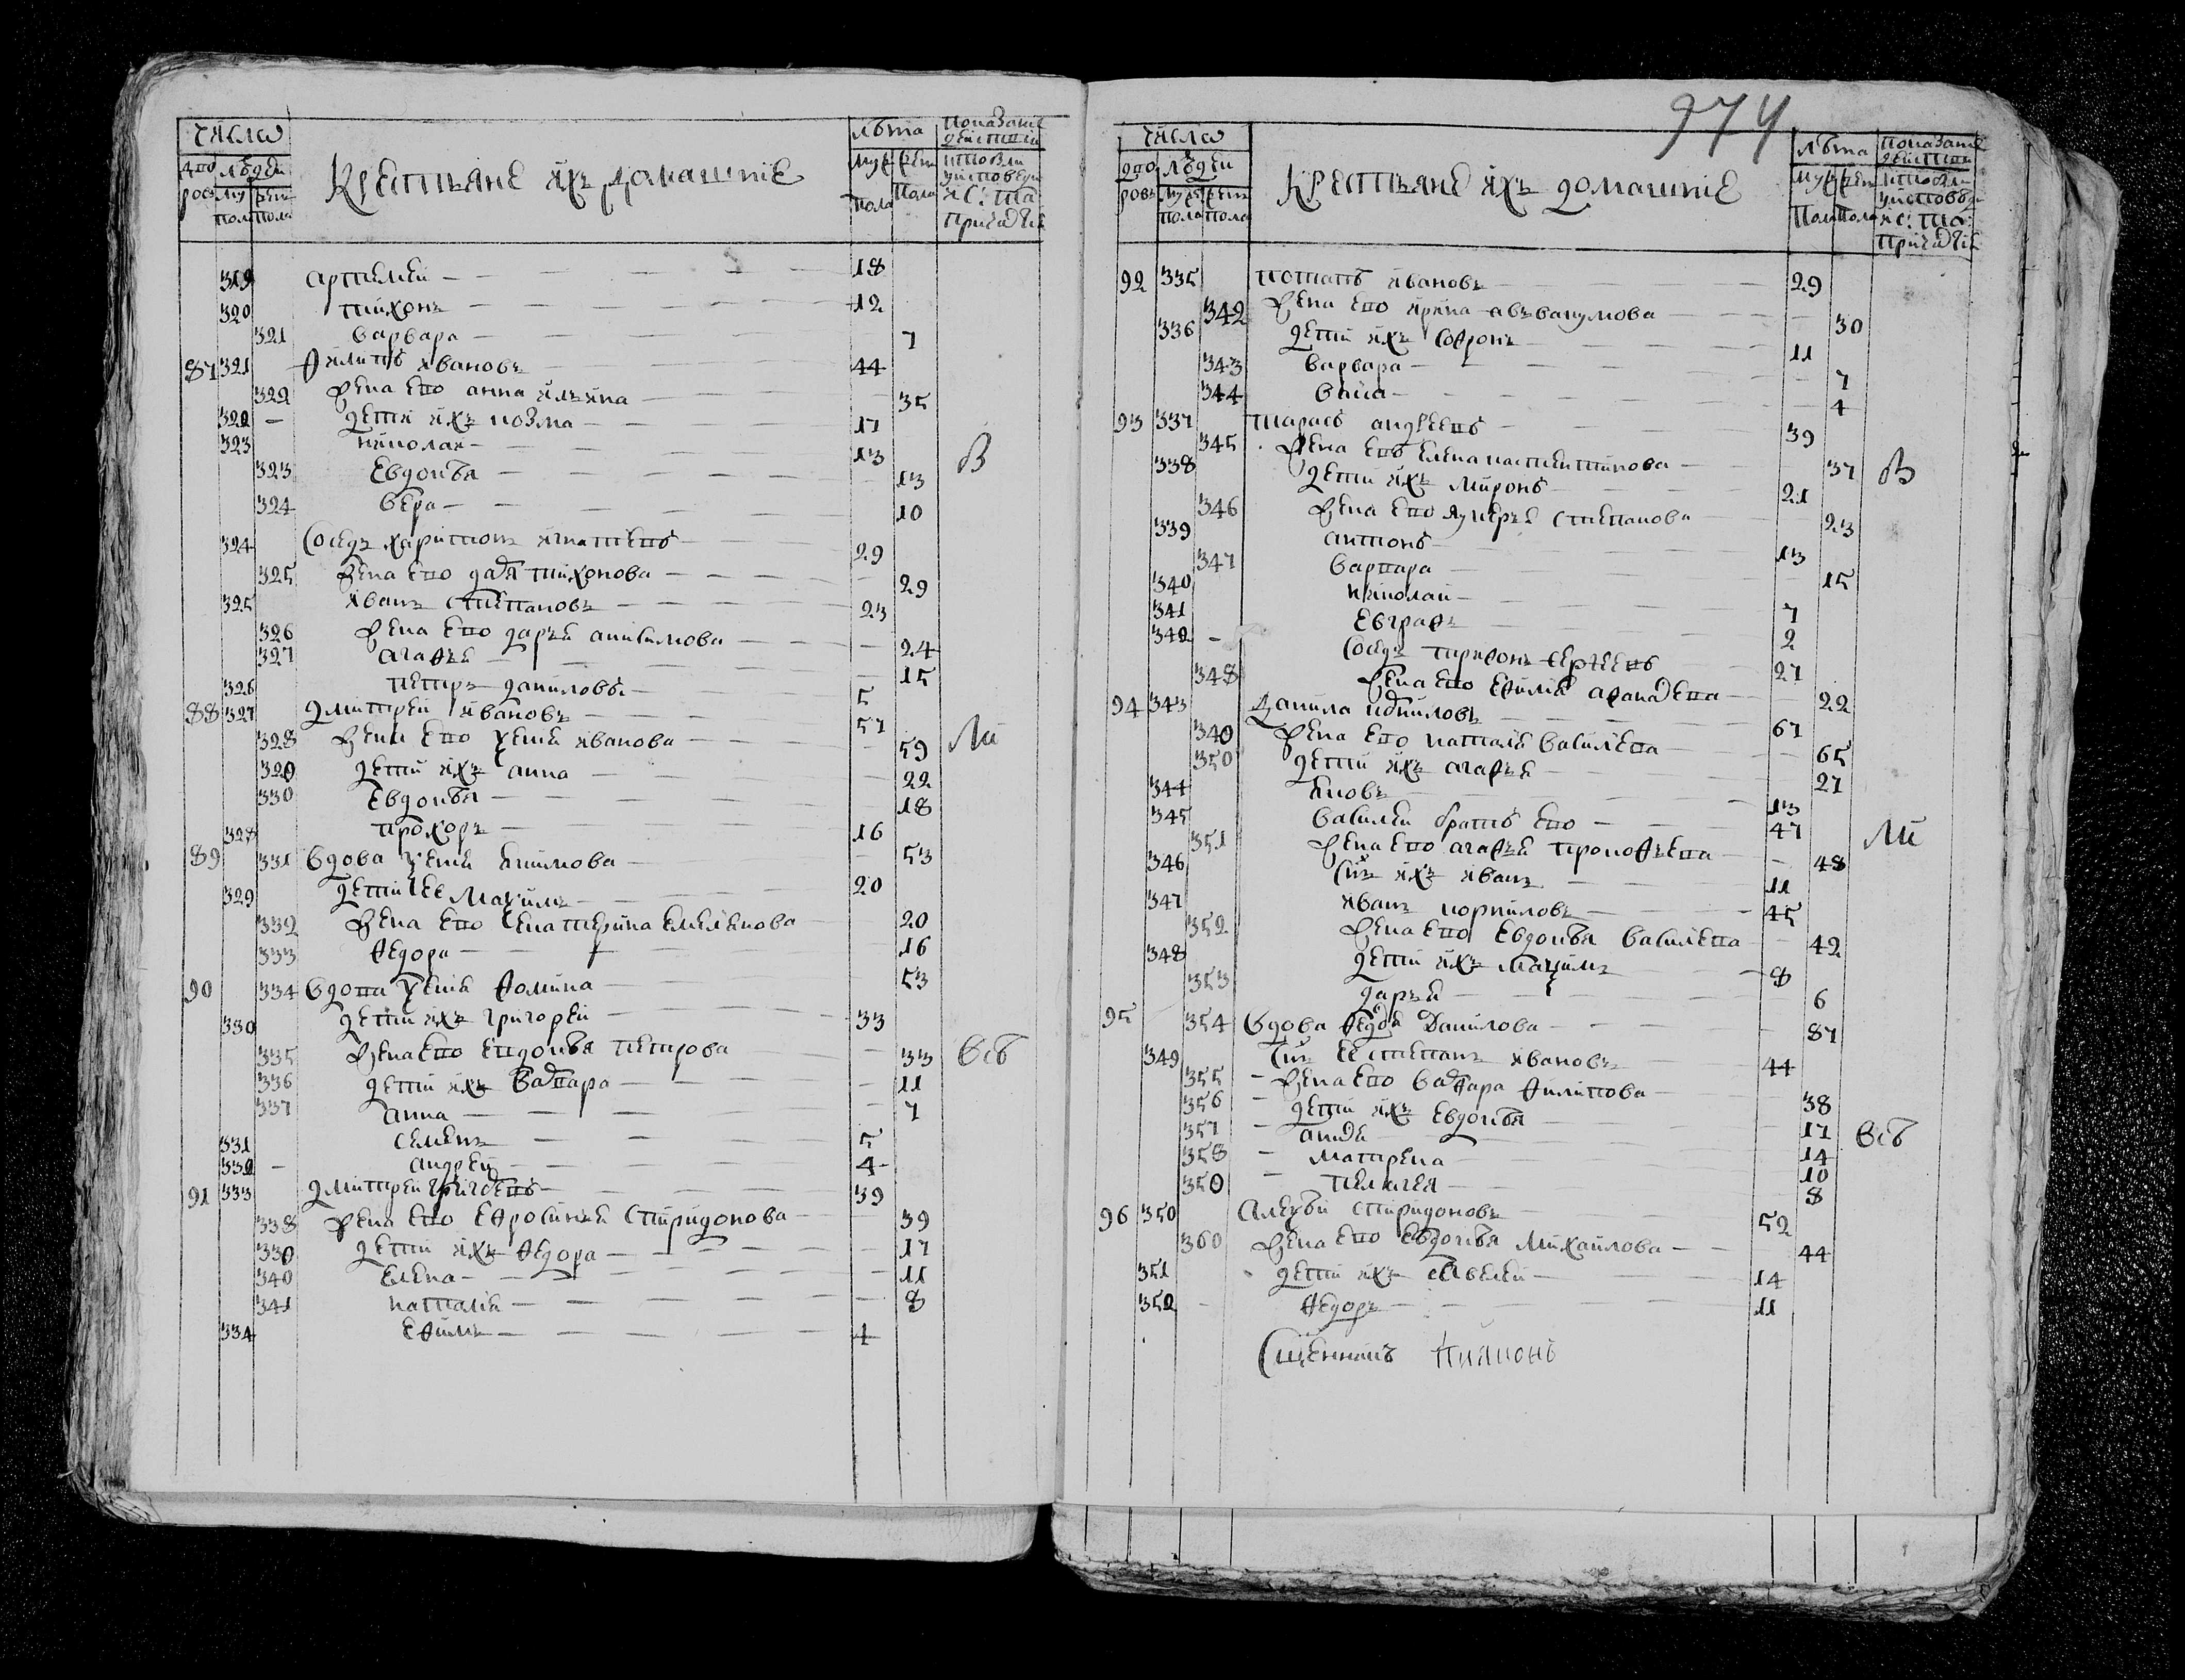 число
дворовъ людей
муж пола жен пола
Крестьяне ихъ домашние
лѣта
муж пола жен пола
319 артемей 18
320 тихонъ 12
321 варвара 7
87 321 филипъ ивановъ 44
322 жена ево анна ильина 35
322 дети ихъ козма 17
323 николаи 13
В
323 евдокѣя 13
324 вера 10
324 соседъ харитонъ игнатевъ 29
325 жена ево дадя тихонова 29
325 иванъ степановъ 23
326 жена ево дарья анисимова 24
327 агафья 15
326 петръ даниловъ 5
88 327 дмитрей ивановъ 57
328 жена ево ѯения иванова 59
320 дети ихъ анна 22
330 евдокѣя 18
328 прохоръ 16
89 331 вдова ѯения екимова 53
329 дети ее маѯимъ 20
332 жена ево екатерина емельянова 20
333 федора 16
90 334 вдова ѯения фомина 53
330 дети ихъ григореи 33
335 жена ево евдокѣя петрова 33
336 дети ихъ варвара 11
337 анна 7
331 семенъ 5
332 андрей 4
91 333 дмитреи григоревъ 39
338 жена ево ефросиния спиридонова 39
330 дети ихъ федора 17
340 елена 11
341 наталия 8
334 ефимъ 4
974
число
дворовъ людеи
муж пола жен пола
Крестьяне ихъ домашние
лѣта
муж пола жен пола
92 335 потапъ ивановъ 29
342 жена ево ирина аввакумова 30
336 дети ихъ софронъ 11
343 варвара 7
344 васса 4
93 337 тарасъ андреевъ 39
345 жена евъ елена костентинова 37
В
338 дети ихъ миронъ 21
346 жена ево лукерья степанова 23
339 антонъ 13
347 варвара 15
340 николаи 7
341 евграфъ 2
342 соседъ трифонъ сергеевъ 27
348 жена ево ефимия афанасева 22
94 343 данила кор̾ниловъ 67
340 жена ево наталя василева 65
350 дети ихъ агафья 27
344 яковъ 13
345 василеи братъ ево 47
351 жена ево агафья прокофьева 48
346 сн҃ъ ихъ иванъ 11
347 иванъ корниловъ 45
352 жена ево евдокѣя василева 42
348 дети ихъ маѯимъ 8
353 дарья 6
95 354 вдова федося данилова 87
349 сн҃ъ ее степанъ ивановъ 44
355 жена ево варвара филипова 38
356 дети ихъ евдокѣя 17
357 14
358 матрена 10
350 пелагея 8
96 350 алеѯѣи спиридоновъ 52
360 жена ево евдокѣя михайлова 44
351 дети ихъ савелеи 14
352 федоръ 11